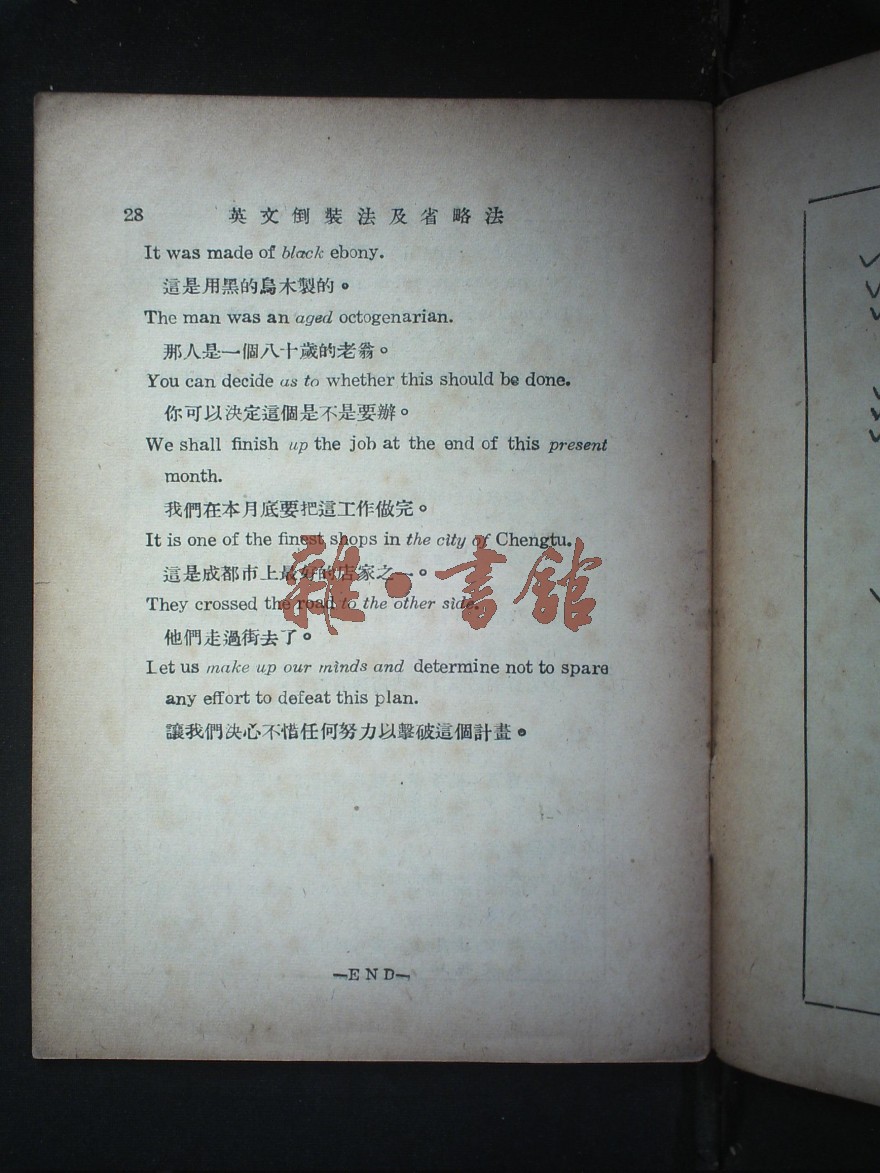 28 英文倒裝法及省略法
It was made of black ebony.
這是用黑的烏木製的。
The man was an aged octogenarian.
那人是一個八十歲的老翁。
You can decide as to whether this should be done.
你可以決定這個是不是要辦。
We shall finish up the job at the end of this present
month.
我們在本月底要把這工作做完。
It is one of the finest shops in the city of Chengtu.
這是成都市上最好的店家之一。
They crossed the road to the other side.
他們走過街去了。
Let us make up our minds and determine not to spare
any effort to defeat this plan.
讓我們決心不惜任何努力以擊破這個計畫。
—END—
雜·書舘